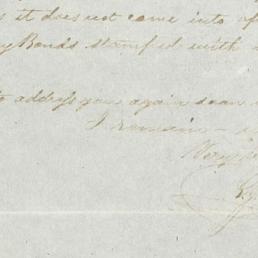 it does not come into
Bonds stamped with
to address you again soon
I remain
Very